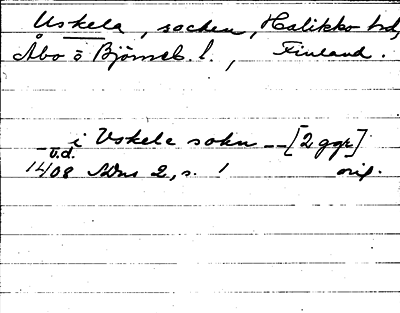 Uskela, socken, Halikko hd,
Åbo o Björneb. l., Finland.
i Vskela sokn -- [2 ggr]
u.d.
1408 ADns 2, s. 1 orig.